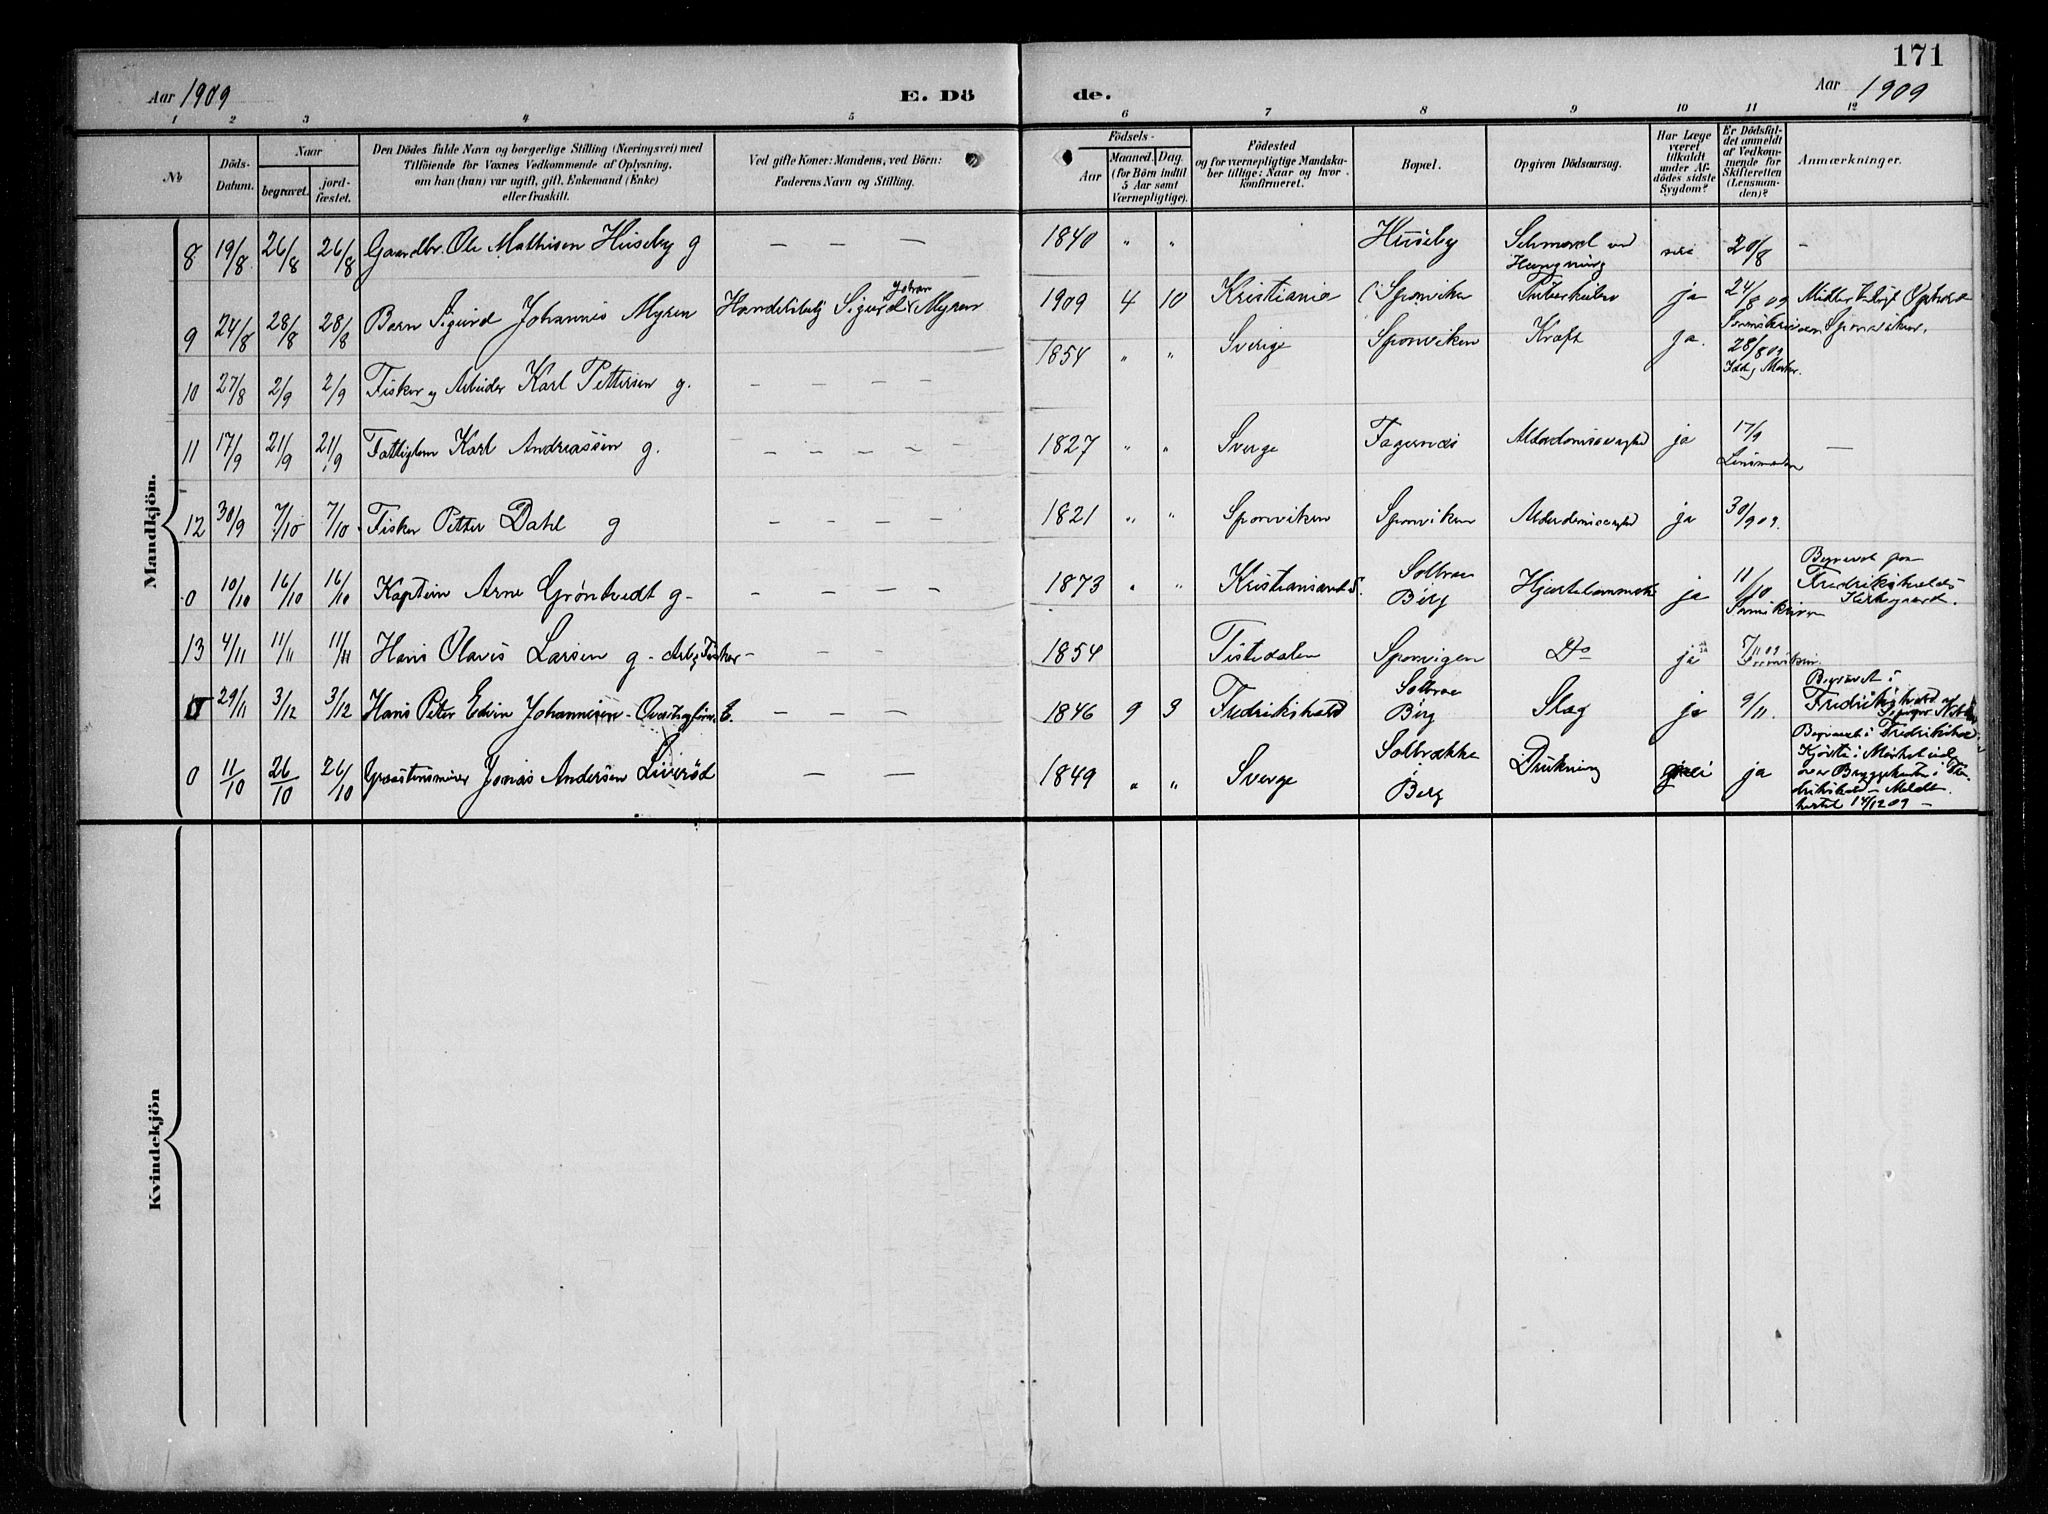 171
Aar 1909
E. Dö
de.
Aar 1909
1 2 3 4 5 6 7 8 9 10 11 12
No
Döds-
Datum.
Naar
begravet.
jord-
fæstet.
Den Dödes fulde Navn og borgerlige Stilling (Næringsvei) med
Tilföiende for Voxnes Vedkommende af Oplysning,
om han (hun) var ugift, gift, Enkemand (Enke)
eller fraskilt.
Ved gifte Koner: Mandens, ved Börn:
Faderens Navn og Stilling.
Födsels-
Aar
Maaned. Dag.
(for Börn indtil
5 Aar samt
Værnepligtige).
Födested
og for værnepligtige Mandska-
ber tillige: Naar og hvor
konfirmeret.
Bopæl.
Opgiven Dödsaarsag.
Har Læge
været
tilkaldt
under Af-
dödes sidste
Sygdom?
Er Dödsfal-
det anmeldt
af Vedkom-
mende for
Skifteretten
(Lensman-
den)?
Anmærkninger.
Mandkjön.
8 19/8 26/8 26/8 Gaardbr. Ole Mathisen Huseby g — — — 1840 " " Huseby Selvmord ved nei 20/8 -
Hængning
Johan
9 24/8 28/8 28/8 Barn Sigurd Johannes Myren Sigurd Myren 1909 4 10 Kristiania Sponviken Tuberkulose ja 24/8 09 Ophold
Sorenskriveren Sponviken.
10 27/8 2/9 2/9 Fisker og Arbeider Karl Pettersen g. — — — — 1854 " " Sverige Sponviken Kræft ja. 28/8 09
Idd og Marker.
11 17/9 21/9 21/9 Fattiglem Karl Andreassen g. — — — — 1827 " " Sverge Fagernæs Alderdomssvaghed ja 17/9 —
Lensmanden
12 30/9 7/10 7/10 Fisker Petter Dahl g — — — — 1821 " " Sponviken Sponviken Alderdomssvaghed ja 30/9 09.
0 10/10 16/10 16/10 Kaptein Arne Gröntvedt g — — — — 1873 " " Kristiansand S. Solbræ Berg Hjertelammelse ja 11/10 Begravet paa
Sorenskriver Fredrikshalds
Kirkegaard.
13 4/11 11/11 11/11 Hans Olavis Larsen g - Arb. Fisker - 1854 Tistedalen Sponvigen Do ja 7/11 09
0 29/11 3/12 3/12 Hans Peter Edvin Johannesen - E. — — — 1846 9 9 Fredrikshald Berg Slag ja 9/11. Begravet i
Fredrikshald af
0 11/10 26/10 26/10 Graastensminer Jonas Andersen Liveröd — — 1849 " " Sverge Solbrække Berg Drukning nei ja Begravet i Fredrikshald
Kjörte i Mörket ud
over Bryggekanten i Fre-
drikshald - Meldt
hertil 14/12 09 -
Kvindekjön